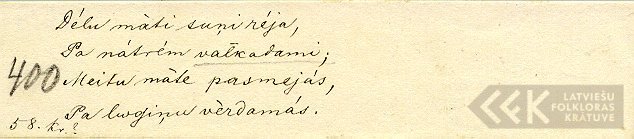 Délu màti suņi rēja,
Pa nátrém valkadami;
400
Meitu màte pasmejás,
Pa lwgiņu vèrdamás.
58. kr.?
LATVIEŠU
FOLKLORAS
KRĀTUVE